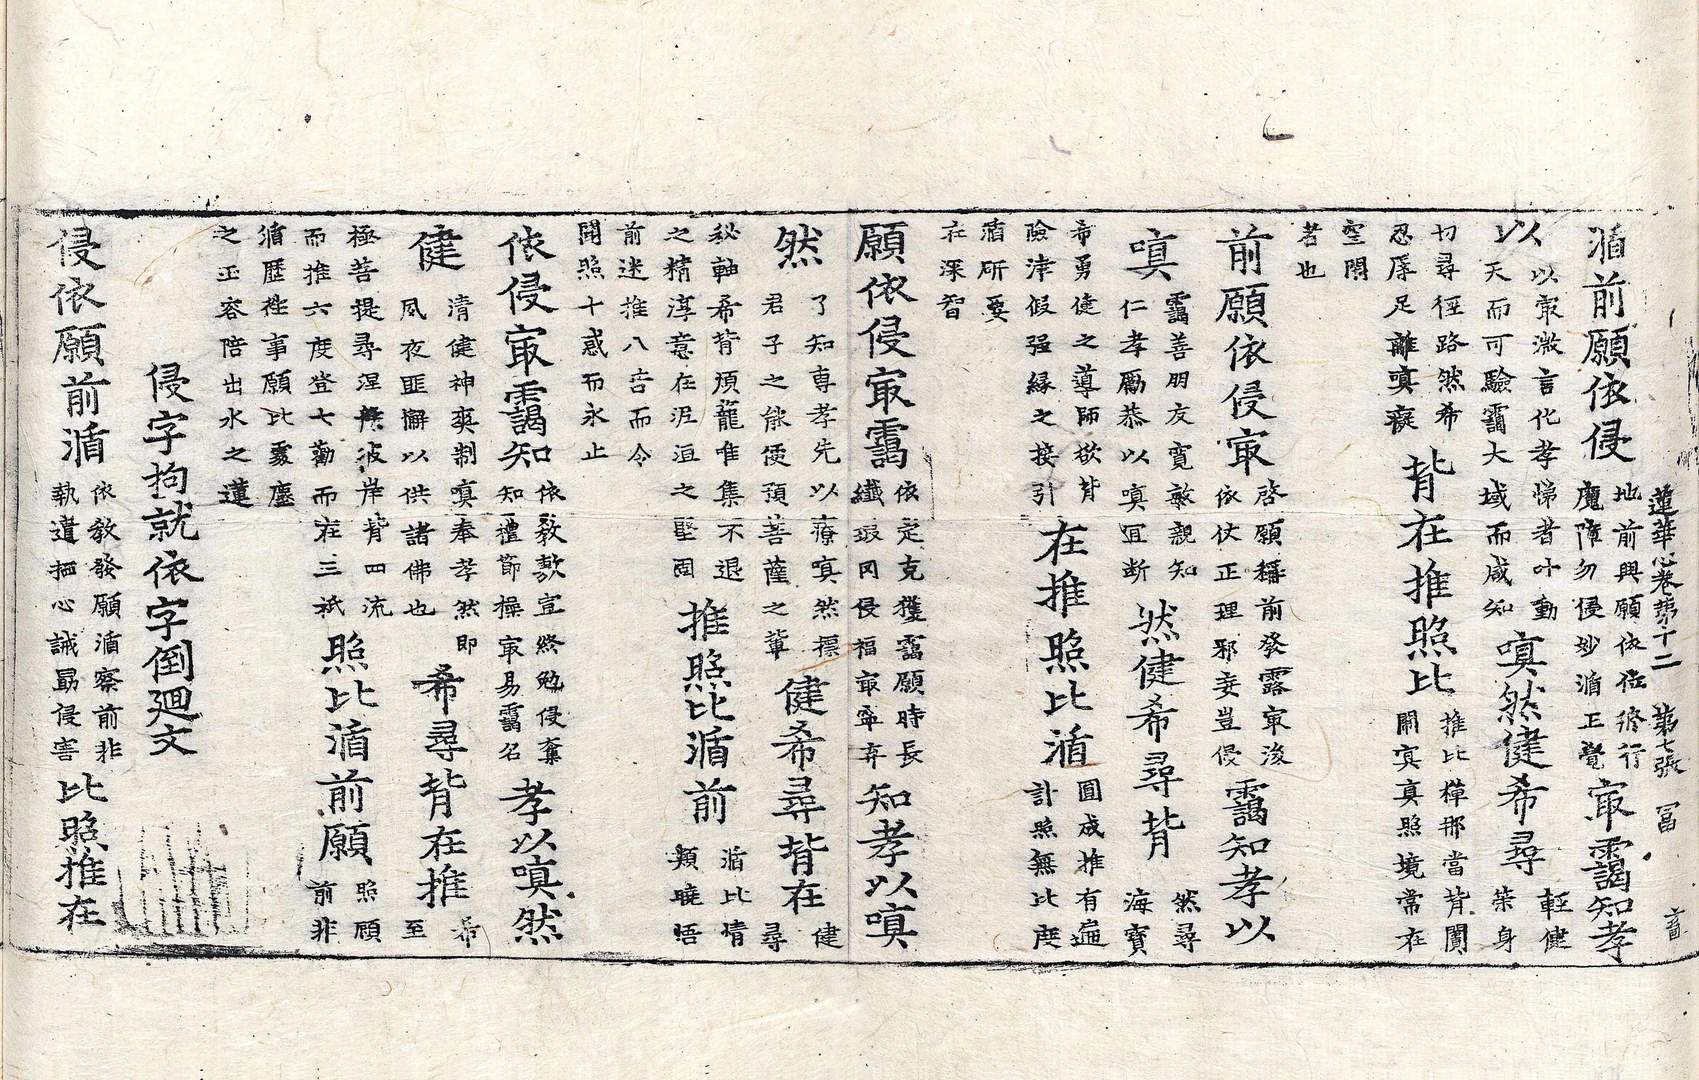 蓮華心卷第十二　第七張　冨
循前願依侵
地前興願依位修行
魔障勿侵妙循正覺
㝡靄知孝
以
以㝡微言化孝悌者叶動
天而可驗靄大域而咸知
嗔然健希尋
輕健
榮身
切尋徑路然希
忍辱足離嗔癡
背在推照比
推比禪那當背闠
鬧寘真照境常在
空閑
者也
前願依侵㝡
啓願稱前發露㝡浚
依仗正理邪妄豈侵
靄知孝以
嗔
靄善朋友寬親知
仁孝勵恭以嗔冝斷
然健希尋背
然尋
海寶
希勇健之導師欲背
險津假强緣之接引
在推照比循
圓成推有遍
計照無比度
循斫要
在深智
願依侵㝡靄
依定克獲靄願時長
纎瑕罔侵福㝡寧弃
知孝以嗔
然
了知專孝先以療嗔然標
君子之能便預菩薩之輩
健希尋背在
健
尋
秘軸希背煩籠唯集不退
之精淳意在泥洹之堅固
推照比循前
循比情
類曉悟
前迷推八苦而令
開照十惑而永止
依侵㝡靄知
依教敷宣終勉侵奪
知禮節操㝡易靄名
孝以嗔然
健
清健神爽制嗔奉孝然即
夙夜匪懈以供諸佛也
希尋背在推
希
至
極菩提尋涅槃波岸背四流
而推六度登七勸而在三祇
照比循前願
照願
前非
循歷性事願比塵
之玉容陪出水之蓮
侵字拘就依字倒廻文
侵依願前循
依教發願循察前非
執遣栖心誡勗侵害
比照推在